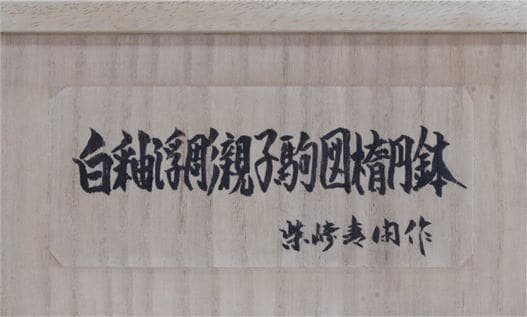 白釉浮彫親子駒図楕円鉢
柴崎春関作